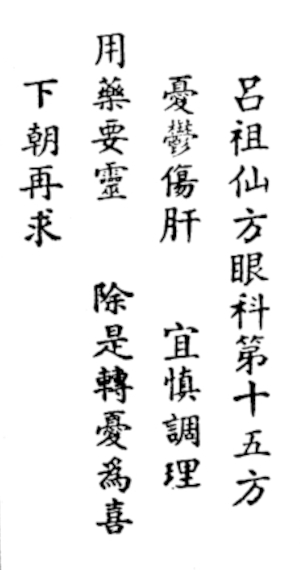 呂祖仙方眼科第十五方
憂鬱傷肝　宜慎調理
用藥要靈　除是轉憂為喜
下朝再求